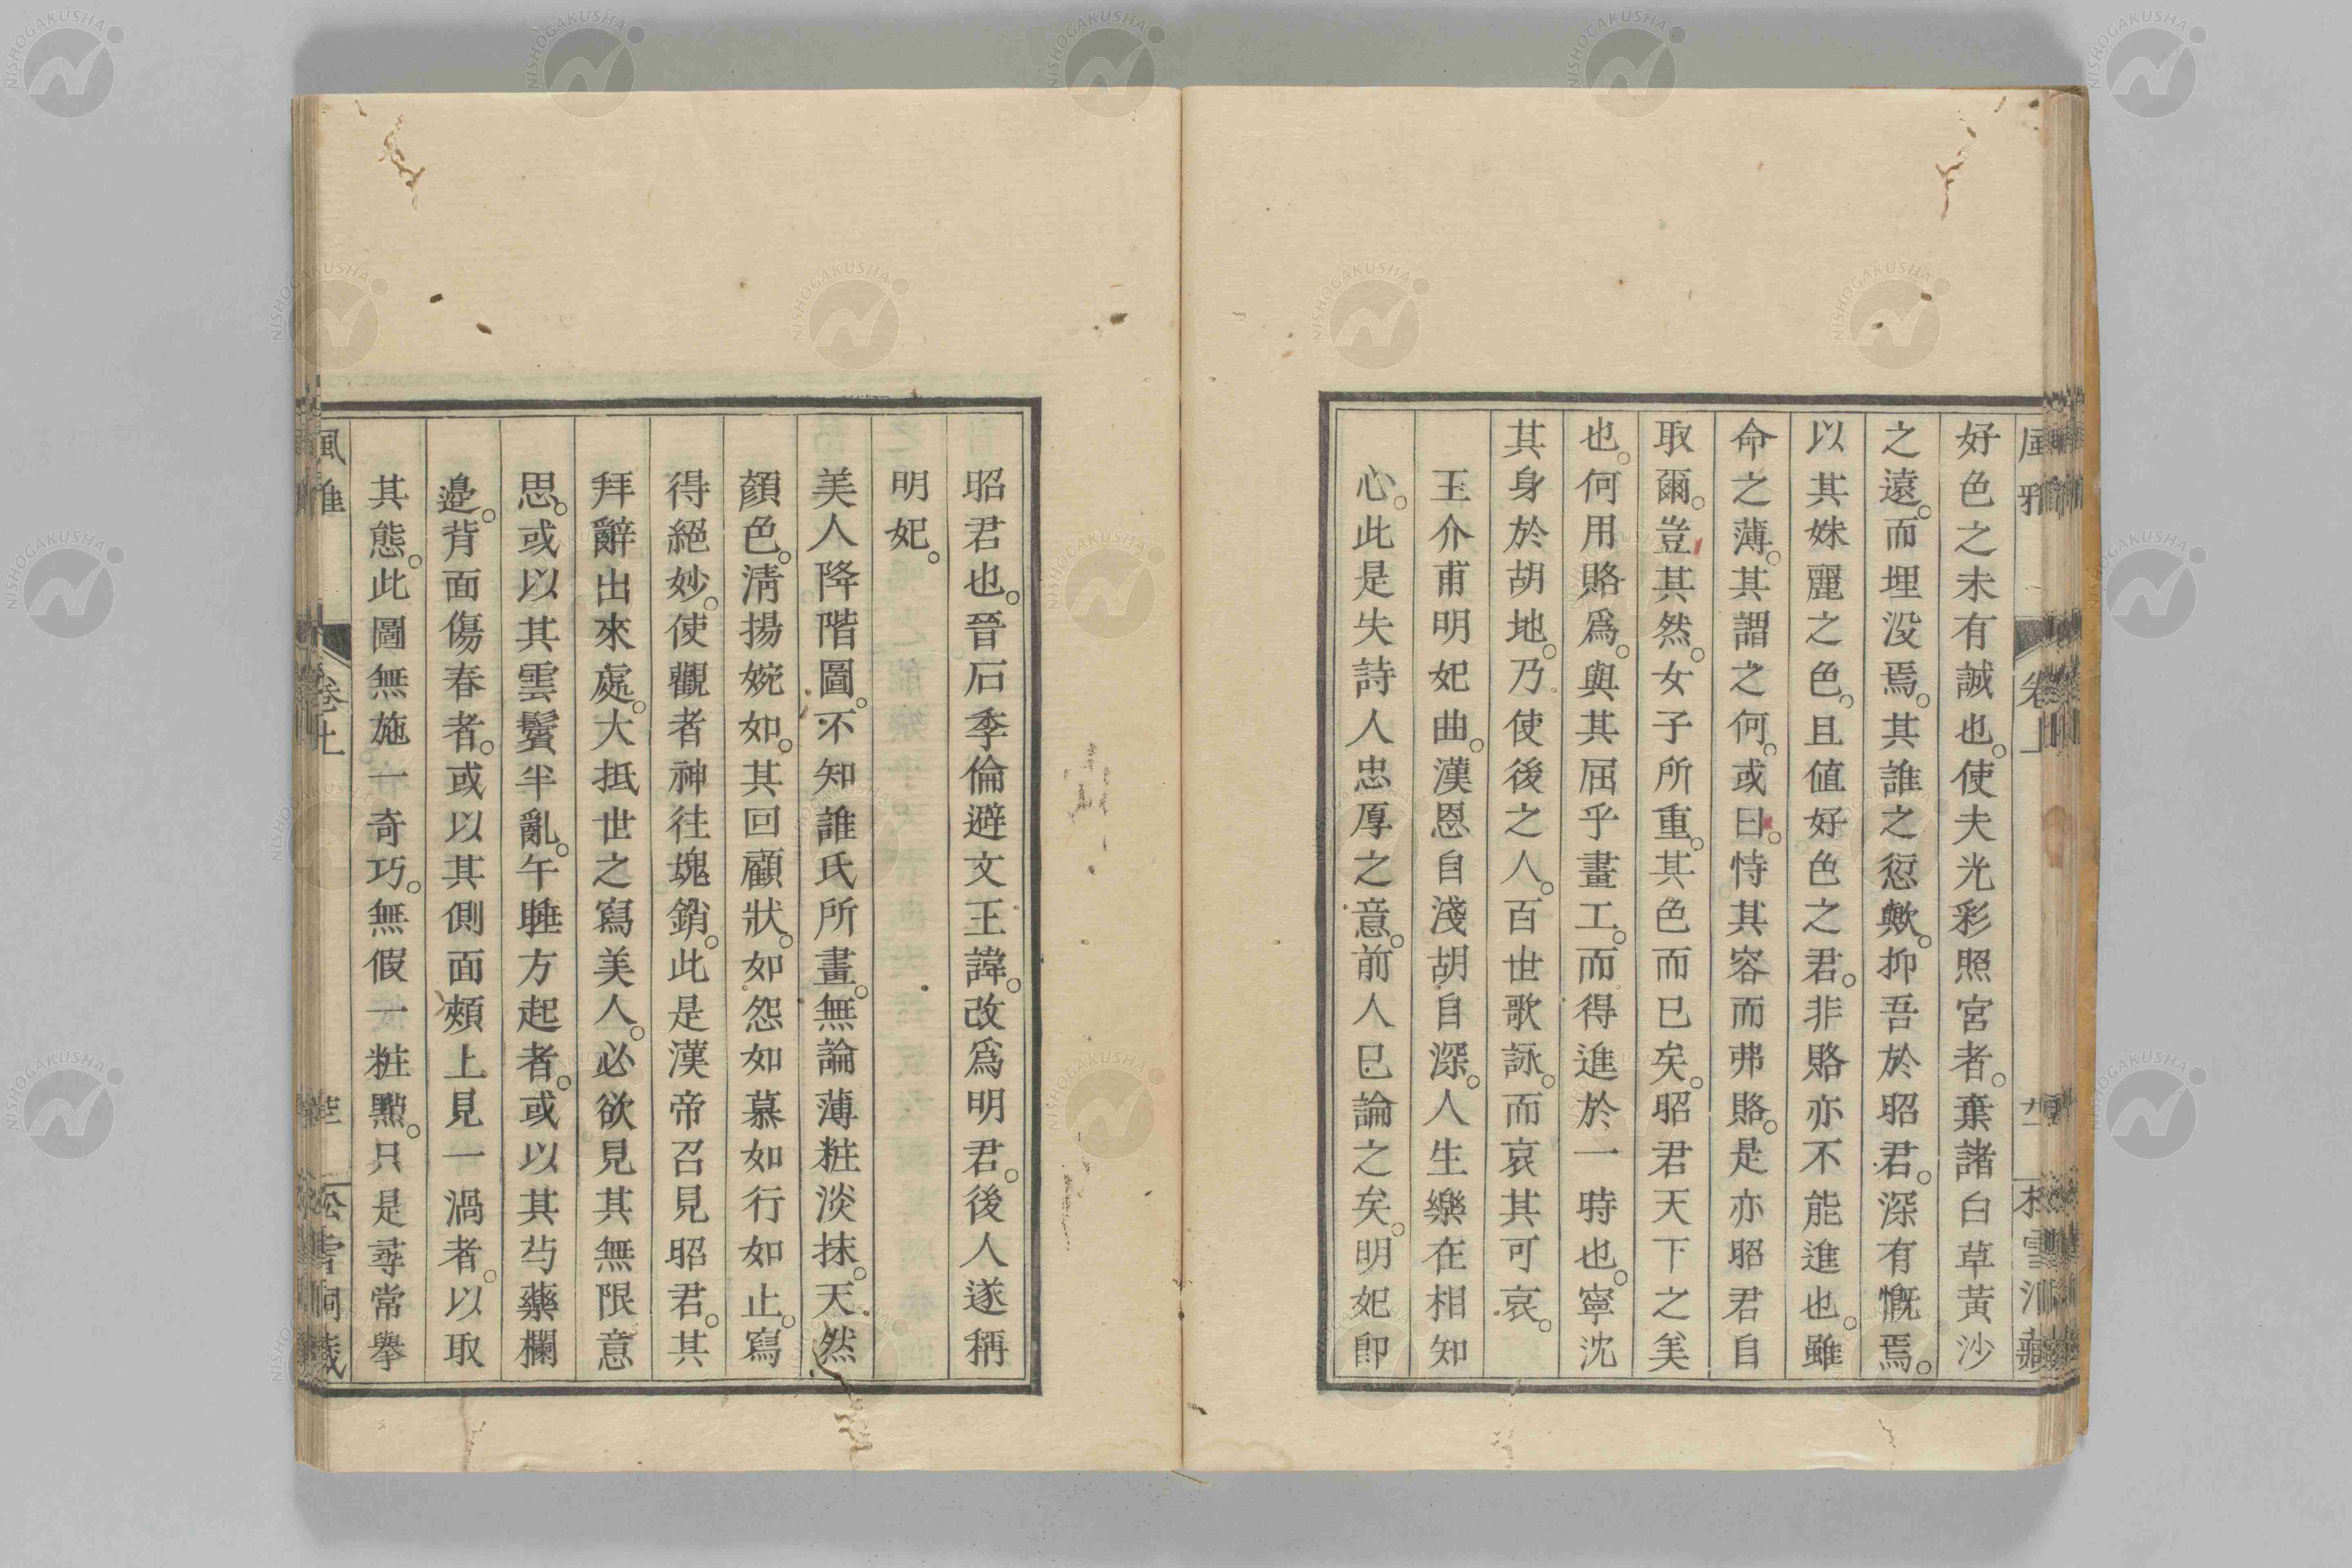 好色之未有誠也。使夫光彩照宮者。棄諸白草黃沙
之遠。而埋没焉。其誰之愆歟。抑吾於昭君。深有慨焉。
以其姝麗之色。且値好色之君。非賂亦不能進也。雖
命之薄。其謂之何。或曰。恃其容而弗賂。是亦昭君自
取爾。豈其然。女子所重。其色而已矣。昭君天下之美
也。何用賂爲。與其屈乎畫工。而得進於一時也。寧沈
其身於胡地。乃使後之人。百世歌詠。而哀其可哀。
王介甫明妃曲。漢恩自淺胡自深。人生樂在相知
心。此是失詩人忠厚之意。前人已論之矣。明妃卽
昭君也。晉石季倫避文王諱。改爲明君。後人遂稱
明妃。
美人降階圖。不知誰氏所畫。無論薄粧淡抹。天然
顏色。淸揚婉如。其回顧狀。如怨如慕如行如止。寫
得絕妙。使觀者神往塊銷。此是漢帝召見昭君。其
拜辭出來處。大抵世之寫美人。必欲見其無限意
思。或以其雲鬟半亂。午睡方起者。或以其芍藥欄
邊。背面傷春者。或以其側面頰上見一渦者。以取
其態。此圖無施一奇巧。無假一粧點。只是尋常擧
風雅
卷上
NISHOGAKUSHA